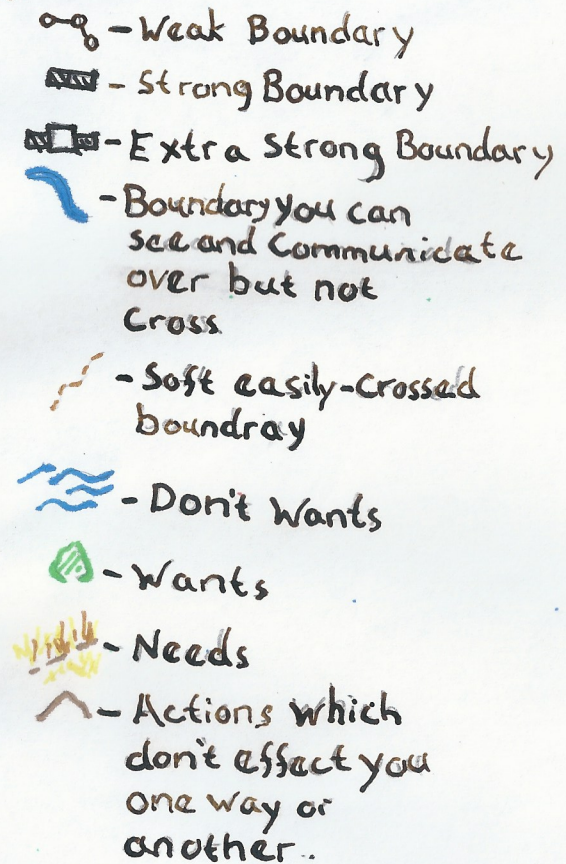 - Weak Boundary
- Strong Boundary
- Extra Strong Boundary
- Boundary you can
see and Communicate
over but not
Cross
- Soft easily-Crossed
boundray
- Don't Wants
- Wants
- Needs
- Actions which
don't effect you
one way or
another..